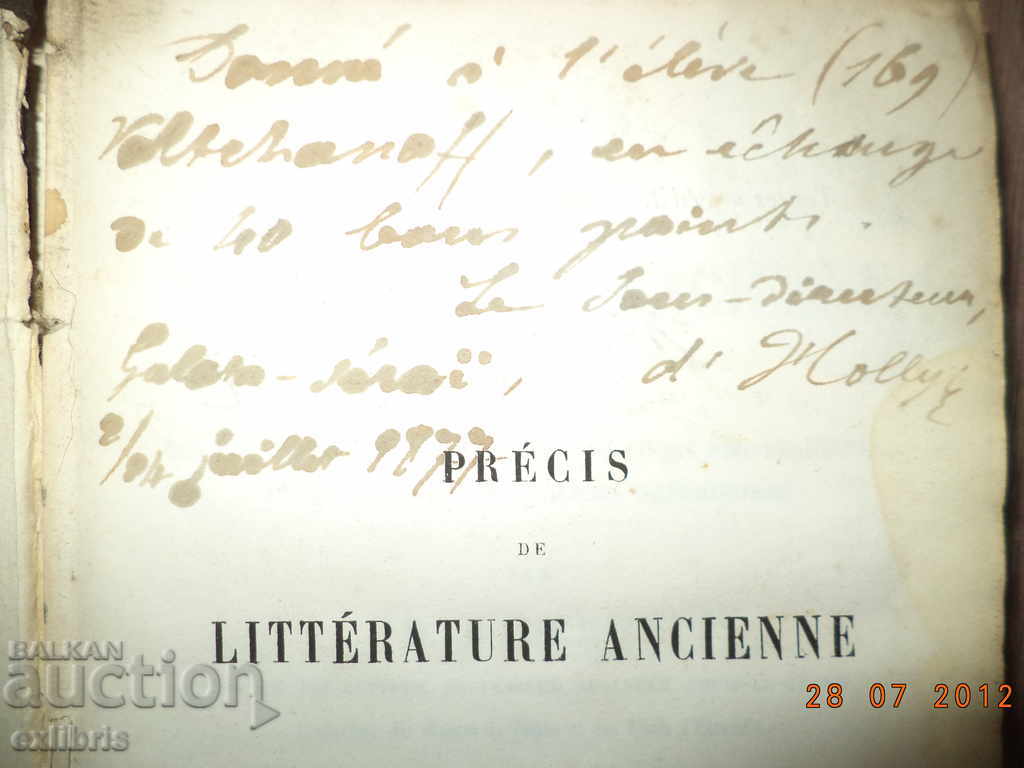 Donné à l'élève (169)
Voltchanoff, en échange
de 40 bons points.
Le Sous-directeur,
Galata-Séraï, d'Hollys
2/14 juillet 1877
PRÉCIS
DE
LITTÉRATURE ANCIENNE
BALKAN
auction
exlibris
28 07 2012